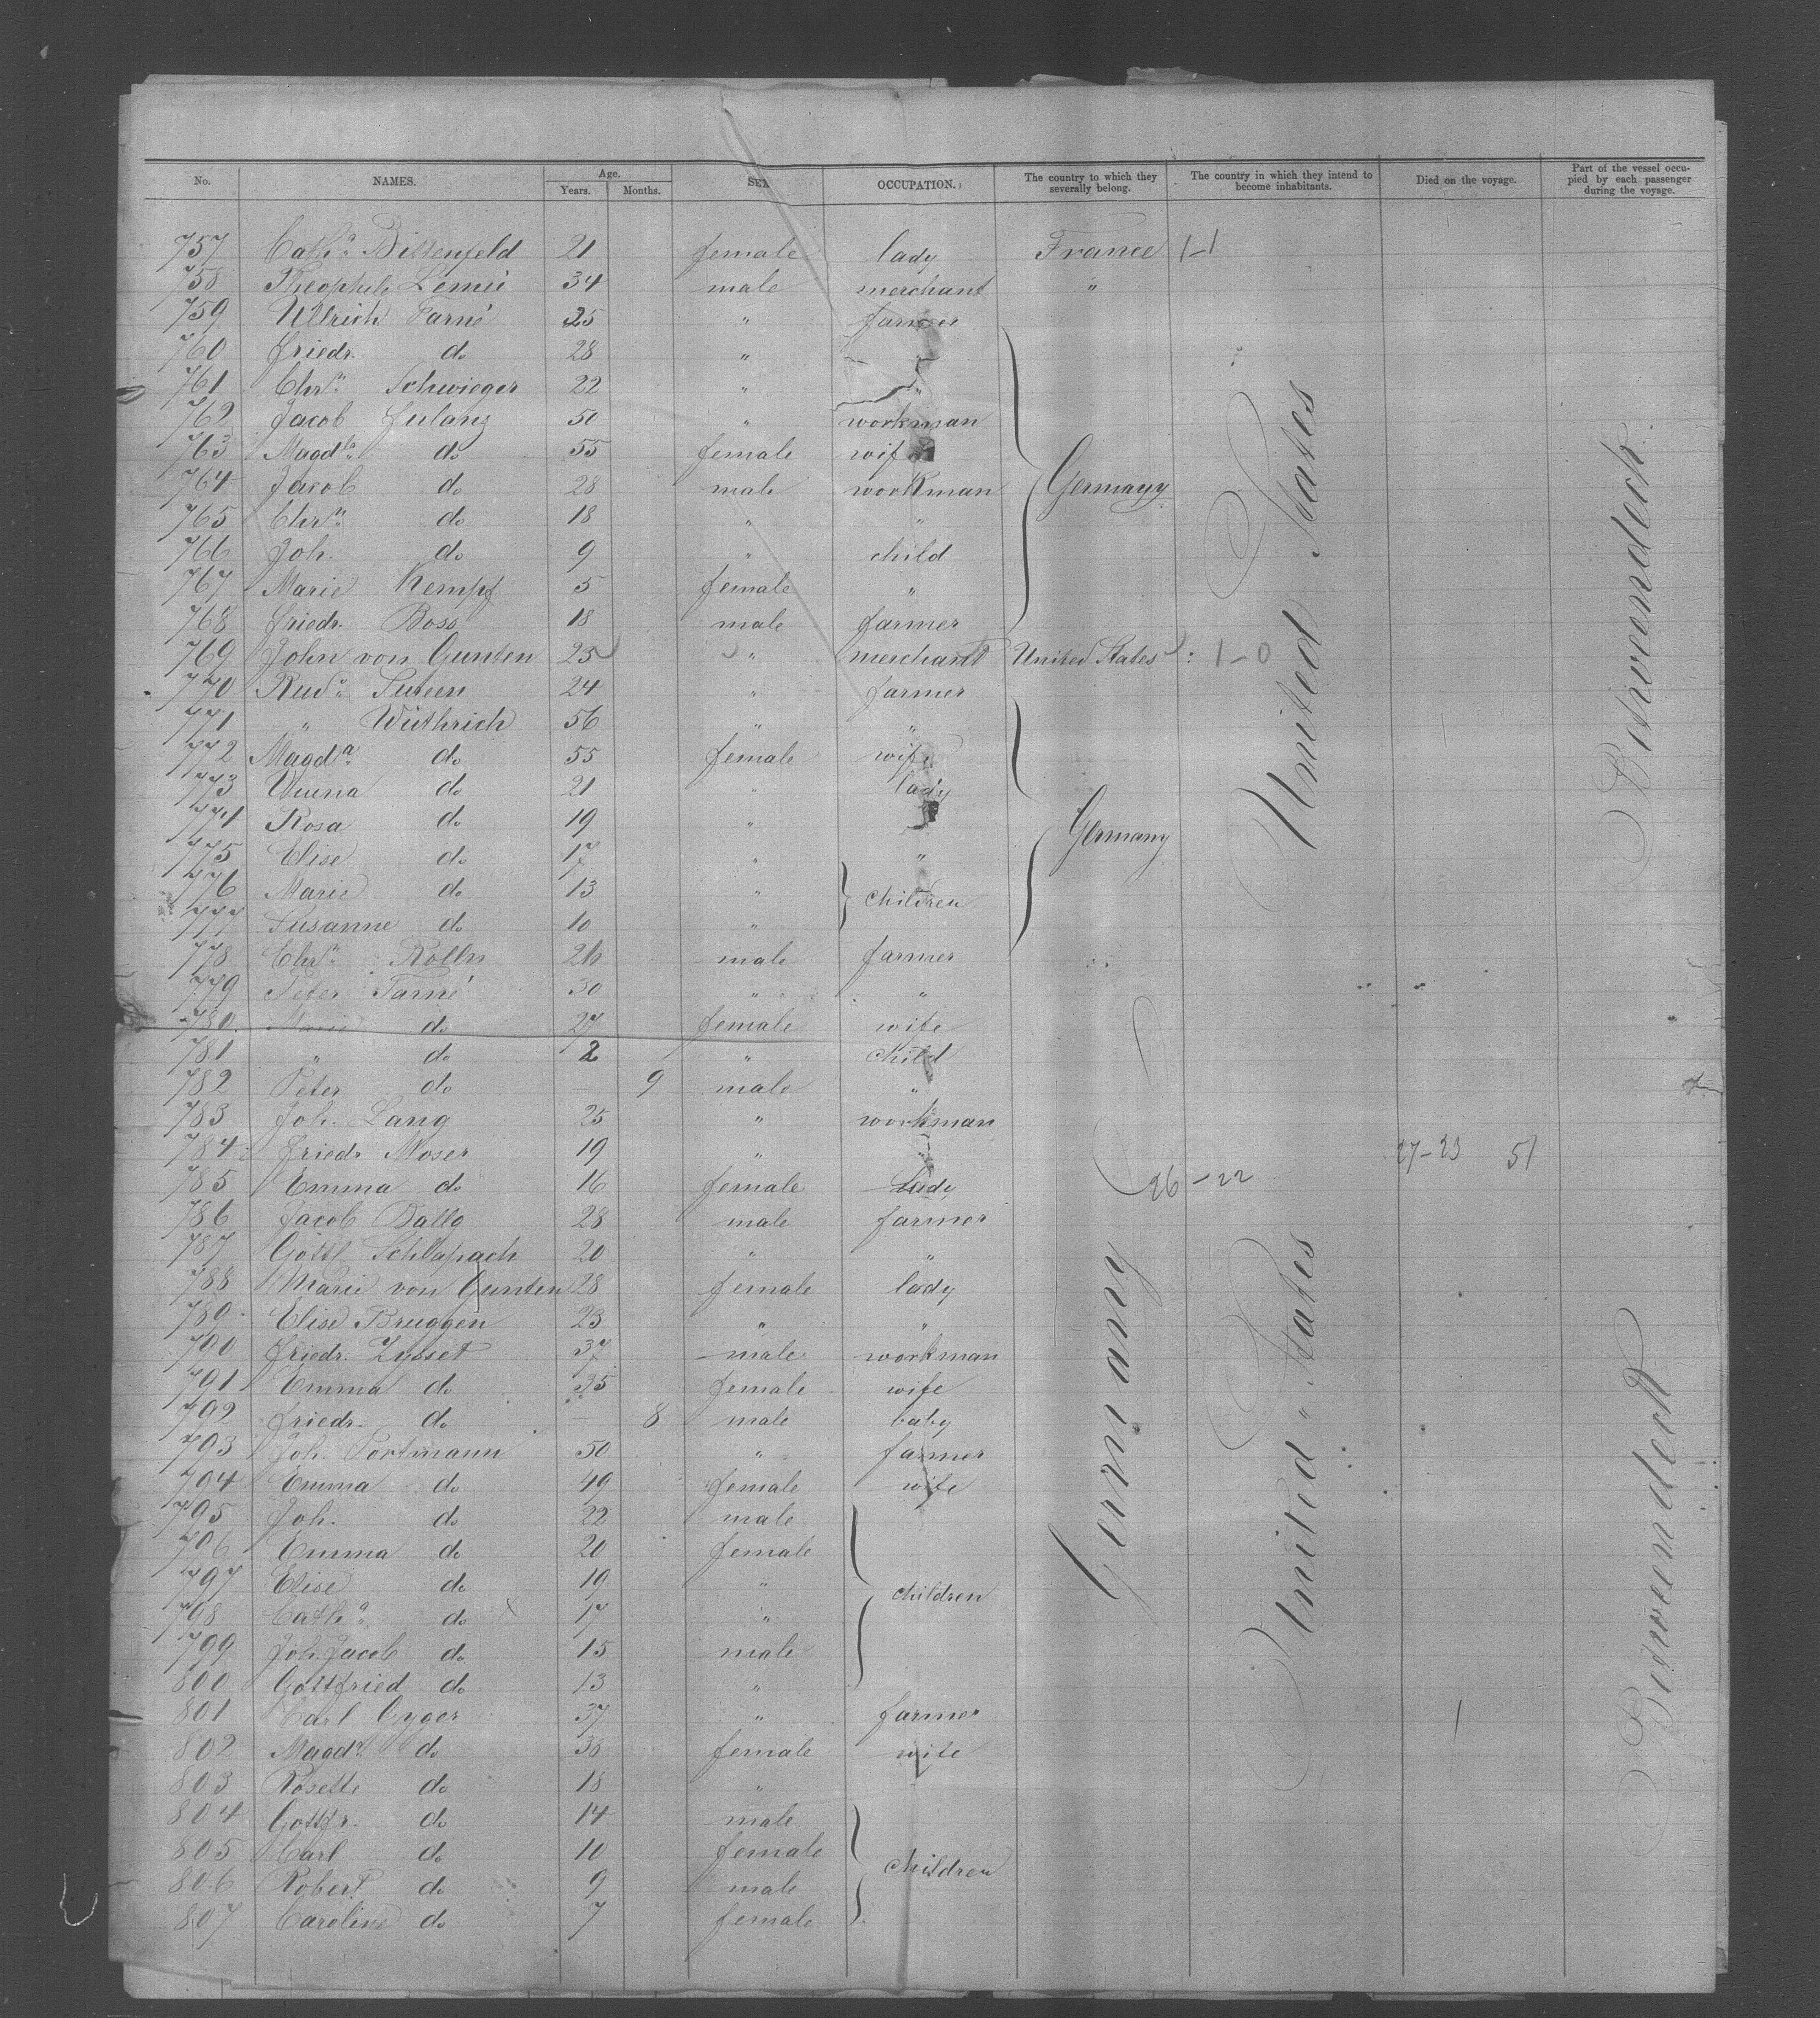 No. NAMES. Age. Years. Months. SEX OCCUPATION. The country to which they severally belong. The country in which they intend to become inhabitants. Died on the voyage. Part of the vessel occupied by each passenger during the voyage.
757 Cath.a Bittenfeld 21 female lady France 1-1
758 Theophile 34 male merchant "
759 Ullrich Farné 25 " farmer
760 Friedr. do 28 " "
761 Chr.n Schwieger 22 " "
762 Jacob 50 " workman
763 Magd.a do 55 female wife
764 Jacob do 28 male workman Germany
765 Chr.n do 18 " "
766 Joh. do 9 " child
767 Marie Kempf 5 female "
768 Friedr. Boss 18 male farmer
769 John von Gunten 25 " merchant United States 1-0
770 Rud. 24 " farmer
771 " Wüthrich 56 " "
772 Magd.a do 55 female wife
773 do 21 " lady
774 Rosa do 19 " "
775 Elise do 17 " " Germany
776 Marie do 13 "
children
777 Susanne do 10 "
778 Chr.n 26 male farmer
779 Peter Farné 30 " "
780 Marie do 27 female wife
781 " do 2 " child
782 Peter do — 9 male "
783 Joh. Lang 25 " workman
784 Friedr. Moser 19 " " 27-23 51
785 Emma do 16 female Lady 26-22
786 Jacob Bally 28 male farmer
787 Gottl. Schlapach 20 " "
788 Marie von Gunten 28 female lady
789 Elise Bruggen 23 " "
790 Friedr. Zysset 37 male workman
791 Emma do 35 female wife
792 Friedr. do — 8 male baby
793 Joh. Portmann 50 " farmer
794 Emma do 49 female wife
795 Joh. do 22 male
796 Emma do 20 female
797 Elise do 19 "
children
798 Cath.a do 17 "
799 Joh. Jacob do 15 male
800 Gottfried do 13 "
801 Carl Gyger 37 " farmer
802 Magd.a do 38 female wife
803 Rosette do 18 "
804 Gottfr. do 14 male
805 Carl do 10 female
children
806 Robert do 9 male
807 Caroline do 7 female
Germany
United States
United " States
Betweendeck
Betweendeck